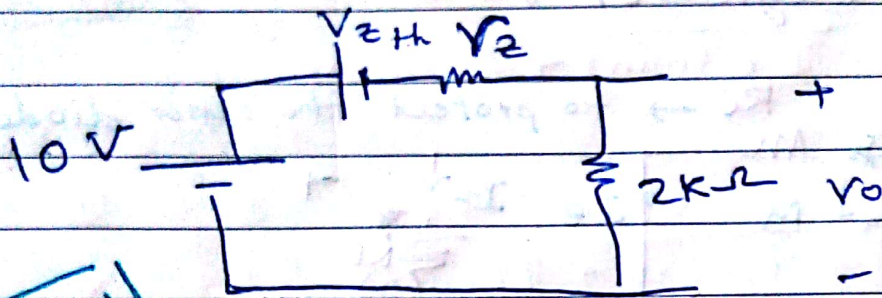 Vzth rz
+
10V
2KΩ vo
-